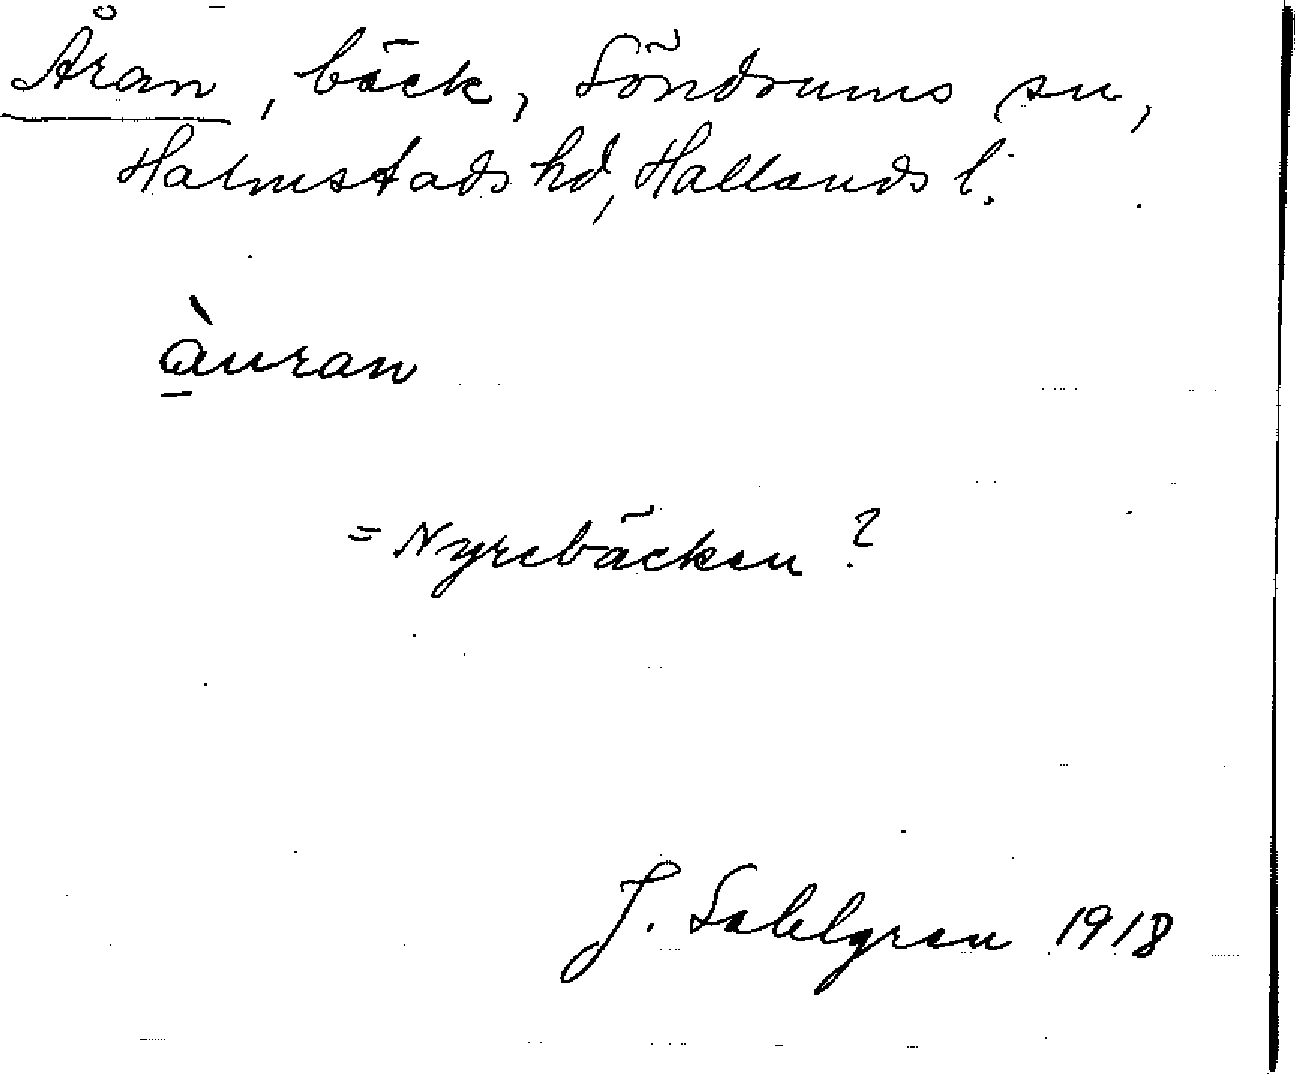 Åran, bäck, Söndrums sn,
Halmstads hd, Hallands l.
àuran
= Nyrebäcken ?
J. Sahlgren 1918